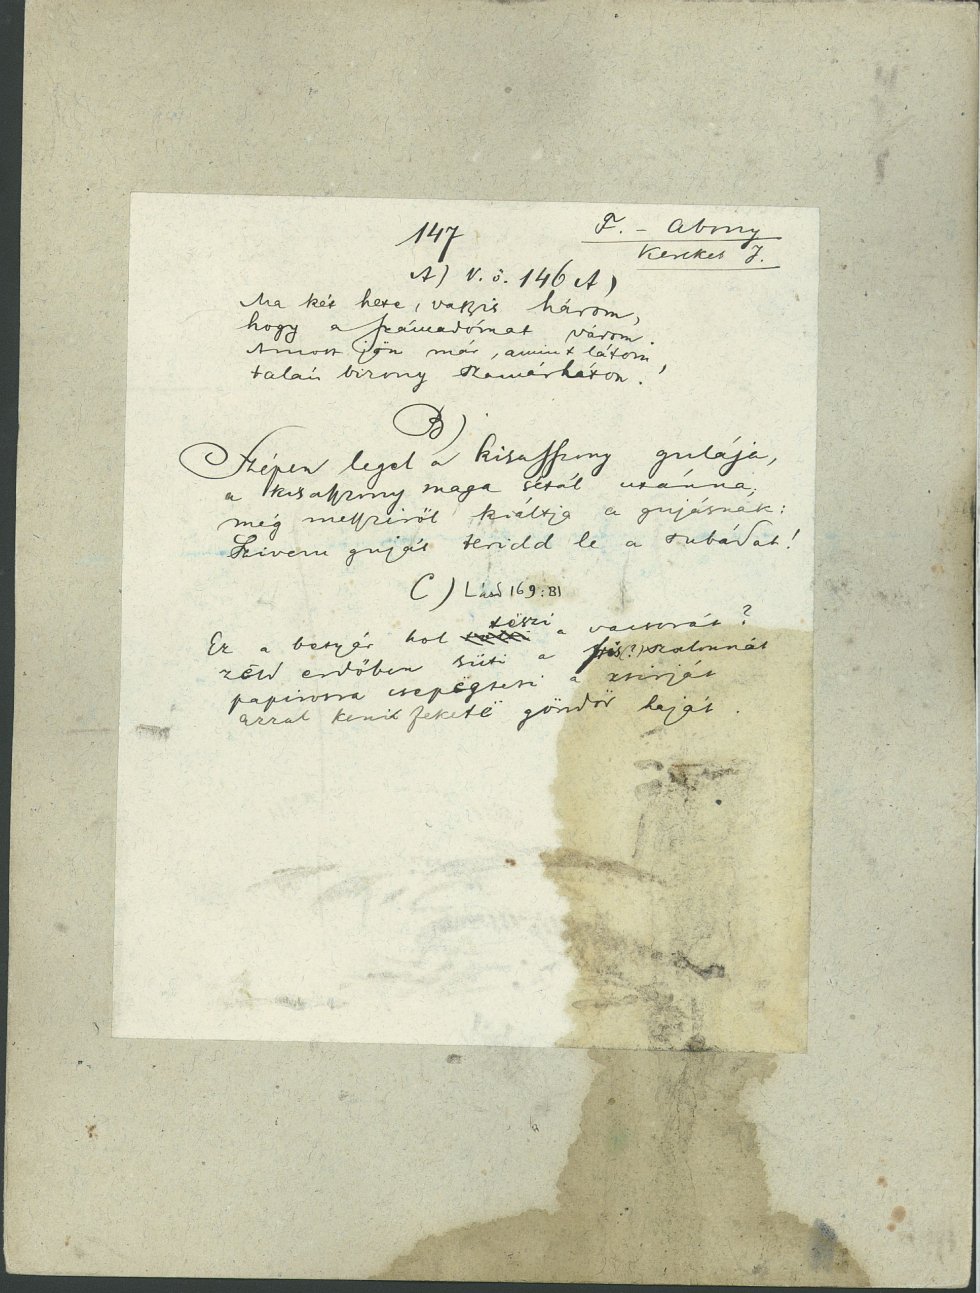 147
F. - Abony
Kerekes J.
A) V. ö. 146 A)
Ma két hete, vagyis három,
hogy a számadómat várom.
Amott jön már, amint látom,
talán bizony szamárháton.
B)
Szépen legel a kisasszony gulája,
a kisasszony maga sétál utánna,
még messziről kiáltja a gujásnak:
Szivem gujás teridd le a subádat!
C) Lásd 169:B)
Ez a betyár hol tëszi a vacsorát?
zöld erdőben süti a friss(?) szalonnát
papirosra csepëgteti a zsirját
azzal keni feketë göndör haját.